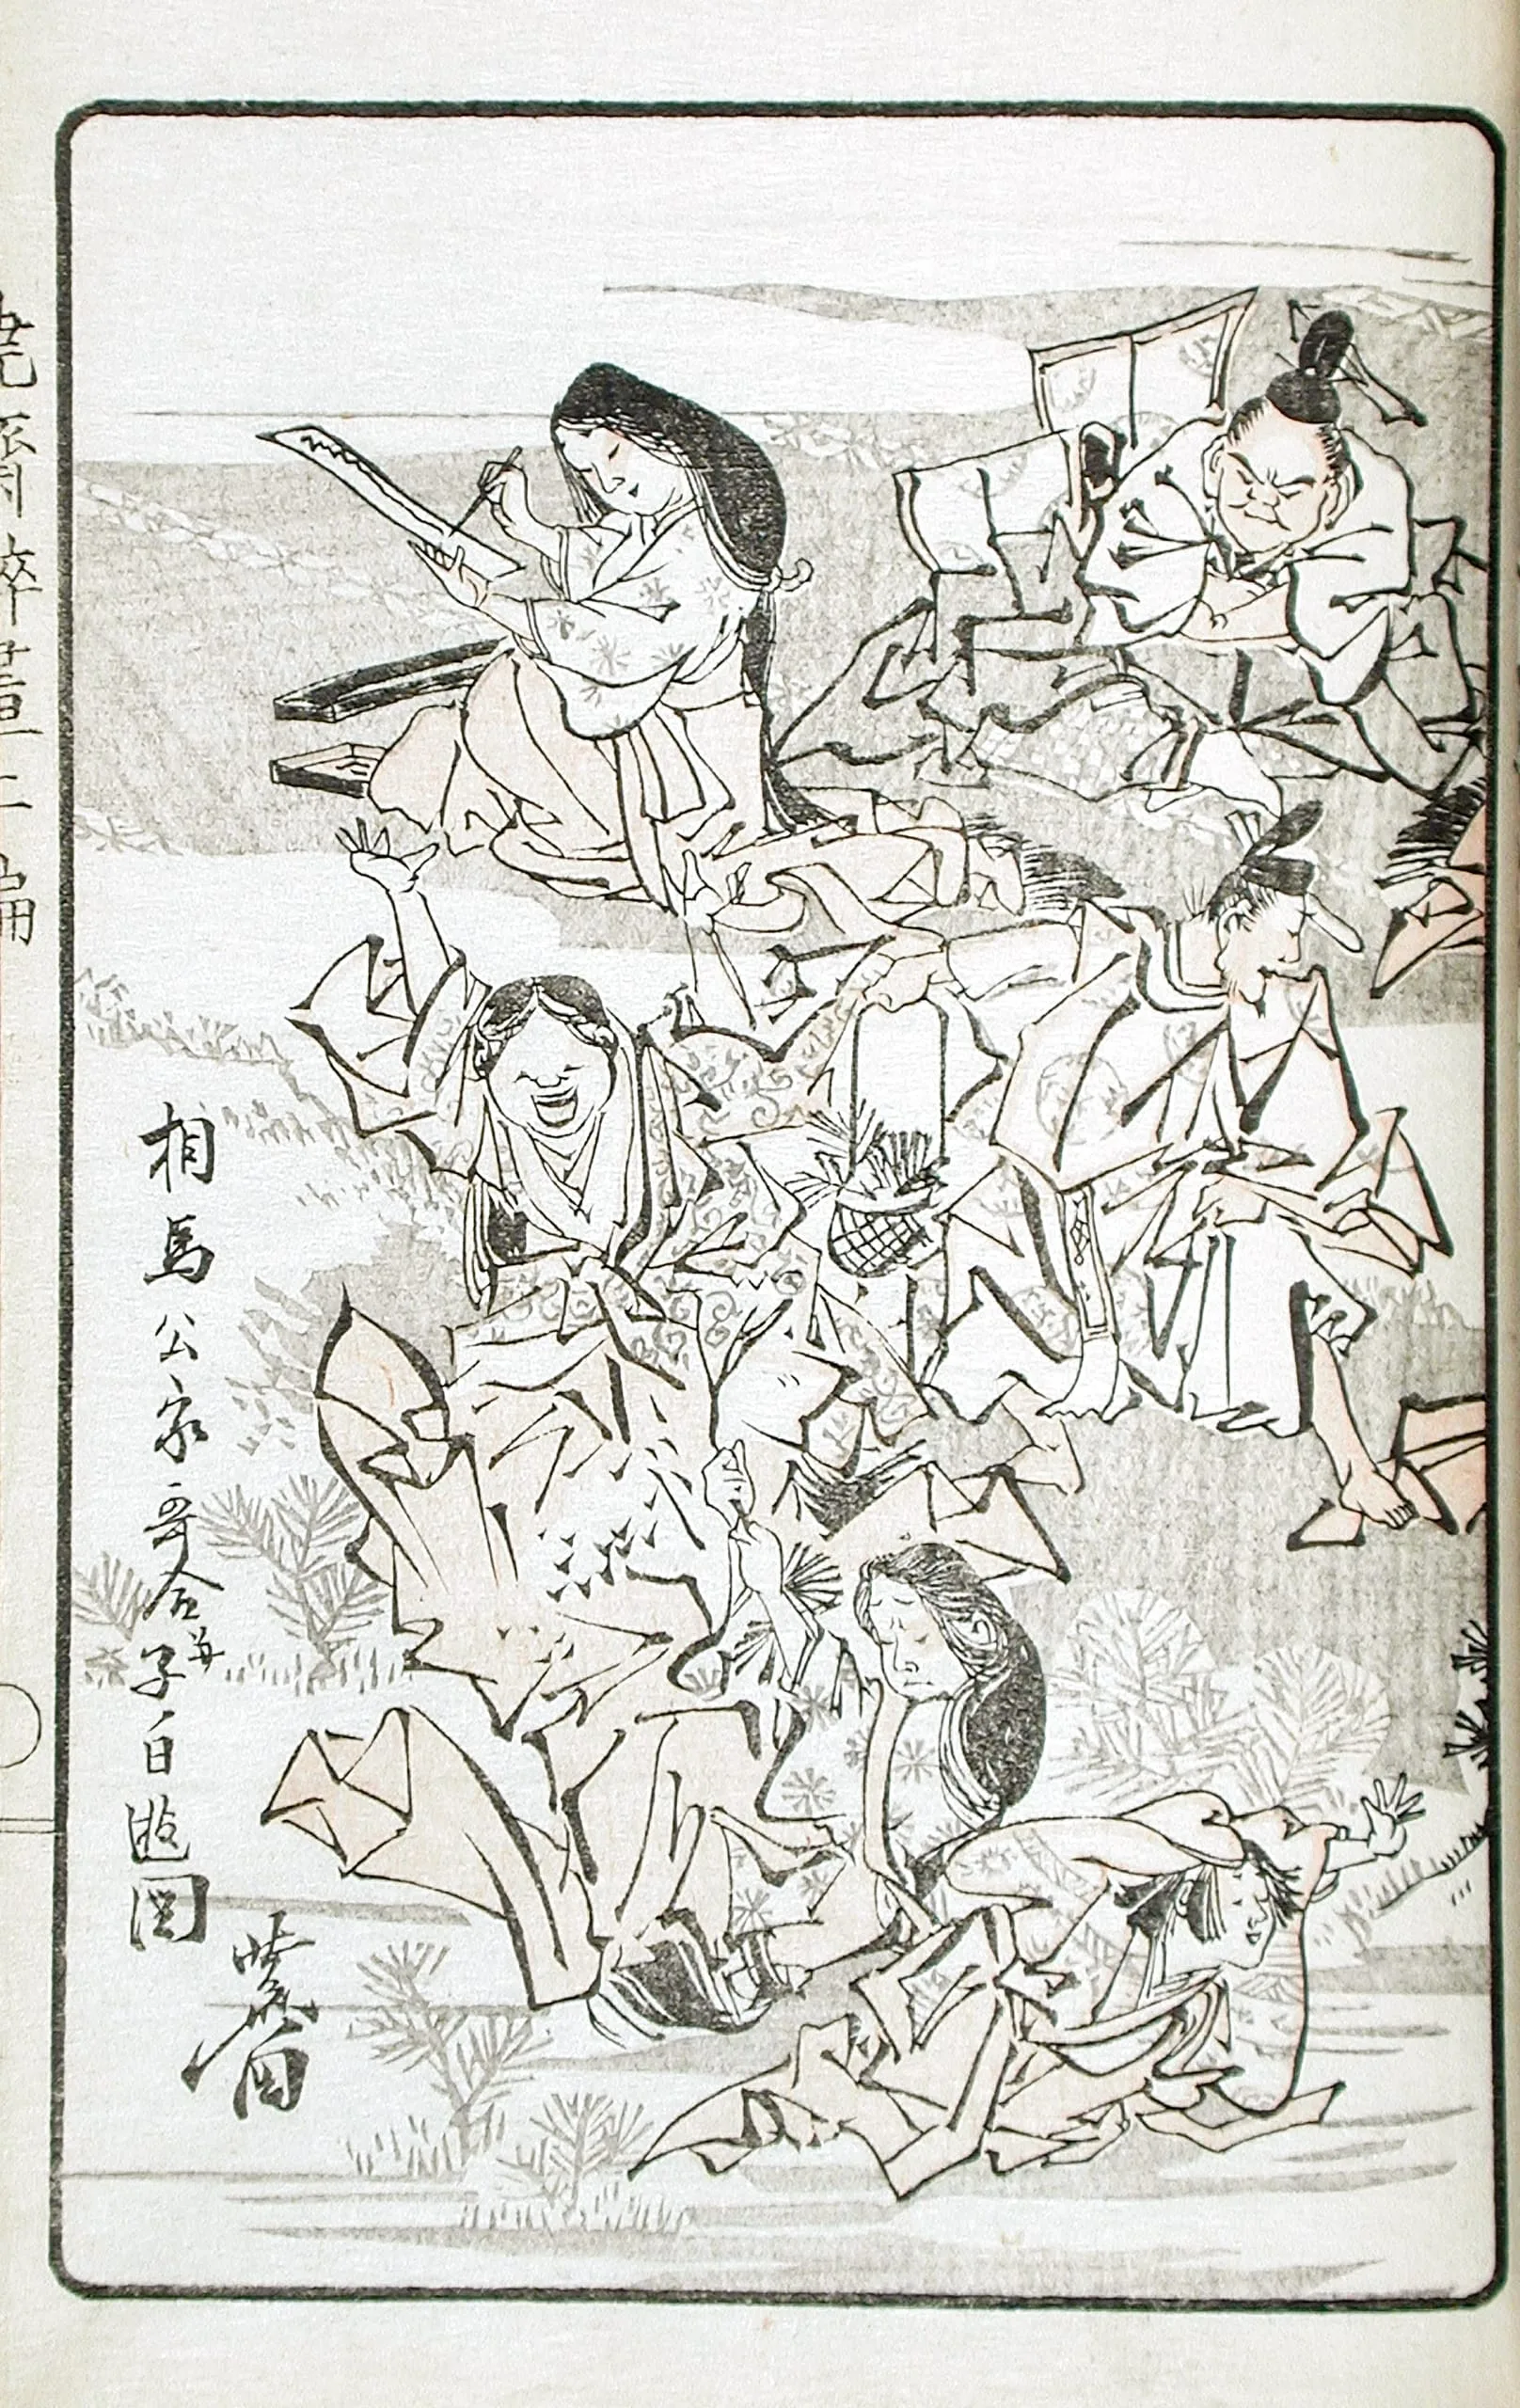 相馬公家哥合并子日遊図
暁斎
暁齋酔畫二編